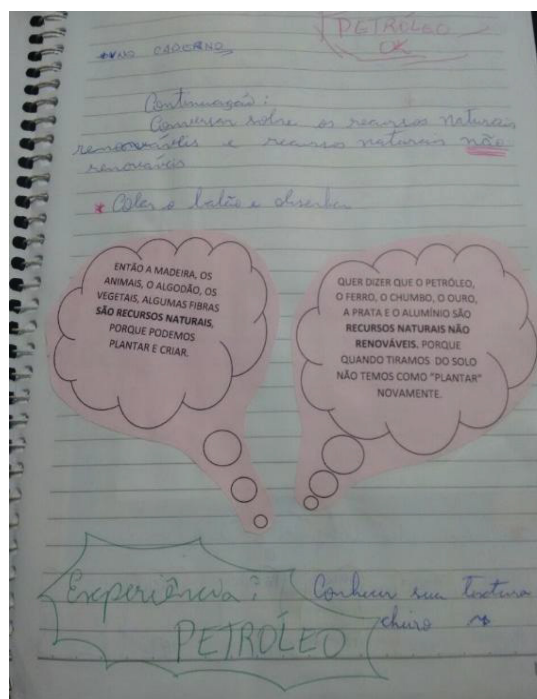 PETRÓLEO
OK
NO CADERNO
Continuação:
Conversar sobre os recursos naturais
renováveis e recursos naturais não
renováveis
* Colar o balão e desenhar
ENTÃO A MADEIRA, OS
ANIMAIS, O ALGODÃO, OS
VEGETAIS, ALGUMAS FIBRAS
SÃO RECURSOS NATURAIS,
PORQUE PODEMOS
PLANTAR E CRIAR.
QUER DIZER QUE O PETRÓLEO,
O FERRO, O CHUMBO, O OURO,
A PRATA E O ALUMÍNIO SÃO
RECURSOS NATURAIS NÃO
RENOVÁVEIS. PORQUE
QUANDO TIRAMOS DO SOLO
NÃO TEMOS COMO "PLANTAR"
NOVAMENTE.
Experiência:
PETRÓLEO
Conhecer sua textura
cheiro